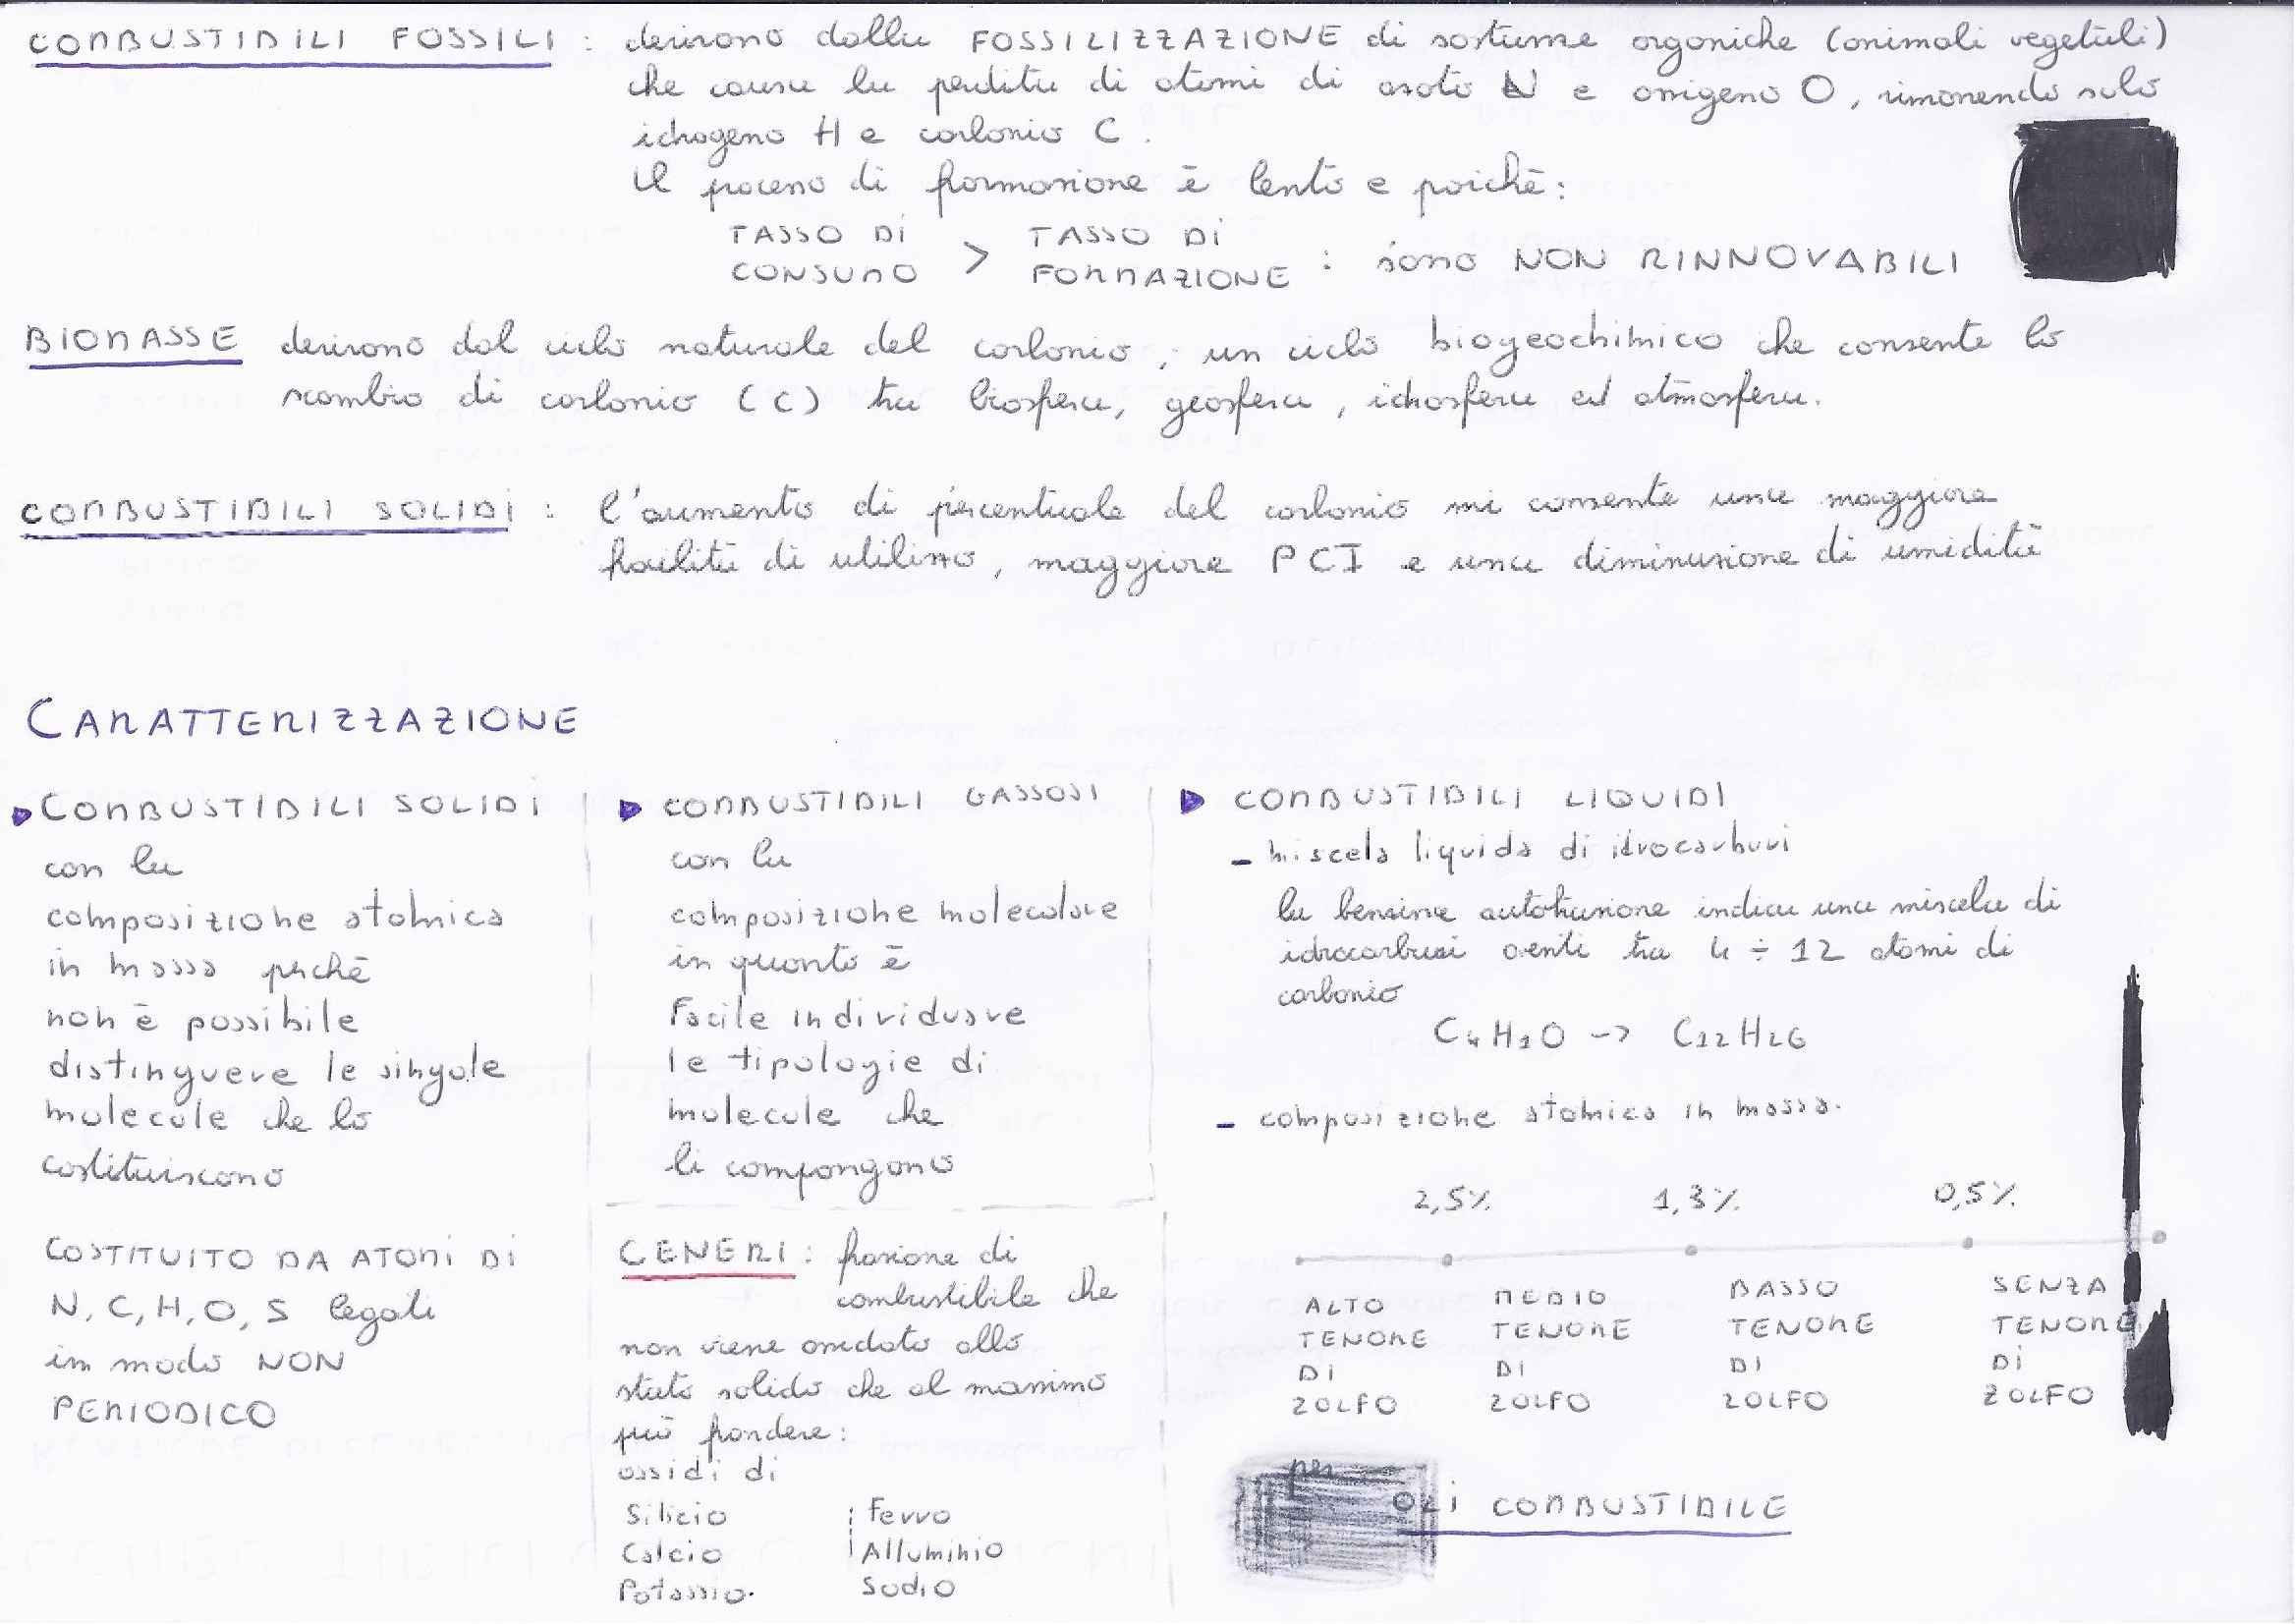 COMBUSTIBILI FOSSILI : derivano dalla FOSSILIZZAZIONE di sostanze organiche (animali vegetali)
che causa la perdita di atomi di azoto N e ossigeno O, rimanendo solo
idrogeno H e carbonio C.
Il processo di formazione è lento e poichè:
TASSO DI CONSUMO > TASSO DI FORMAZIONE : sono NON RINNOVABILI
BIOMASSE derivano dal ciclo naturale del carbonio, un ciclo biogeochimico che consente lo
scambio di carbonio (C) tra biosfera, geosfera, idrosfera ed atmosfera.
COMBUSTIBILI SOLIDI : l'aumento di percentuale del carbonio mi consente una maggiore
facilità di utilizzo, maggiore PCI e una diminuzione di umidità
CARATTERIZZAZIONE
COMBUSTIBILI SOLIDI
con la
composizione atomica
in massa perchè
non è possibile
distinguere le singole
molecole che lo
costituiscono
COSTITUITO DA ATOMI DI
N, C, H, O, S legati
in modo NON
PERIODICO
COMBUSTIBILI GASSOSI
con la
composizione molecolare
in quanto è
facile individuare
le tipologie di
molecole che
li compongono
CENERI : frazione di
combustibile che
non viene ossidato allo
stato solido che al massimo
può fondere:
ossidi di
Silicio Ferro
Calcio Alluminio
Potassio. Sodio
COMBUSTIBILI LIQUIDI
- miscela liquida di idrocarburi
la benzina autotrazione indica una miscela di
idrocarburi aventi tra 4 ÷ 12 atomi di
carbonio
C4H10 -> C12H26
- composizione atomica in massa.
2,5% 1,3% 0,5%
ALTO TENORE DI ZOLFO
MEDIO TENORE DI ZOLFO
BASSO TENORE DI ZOLFO
SENZA TENORE DI ZOLFO
per OLI COMBUSTIBILE